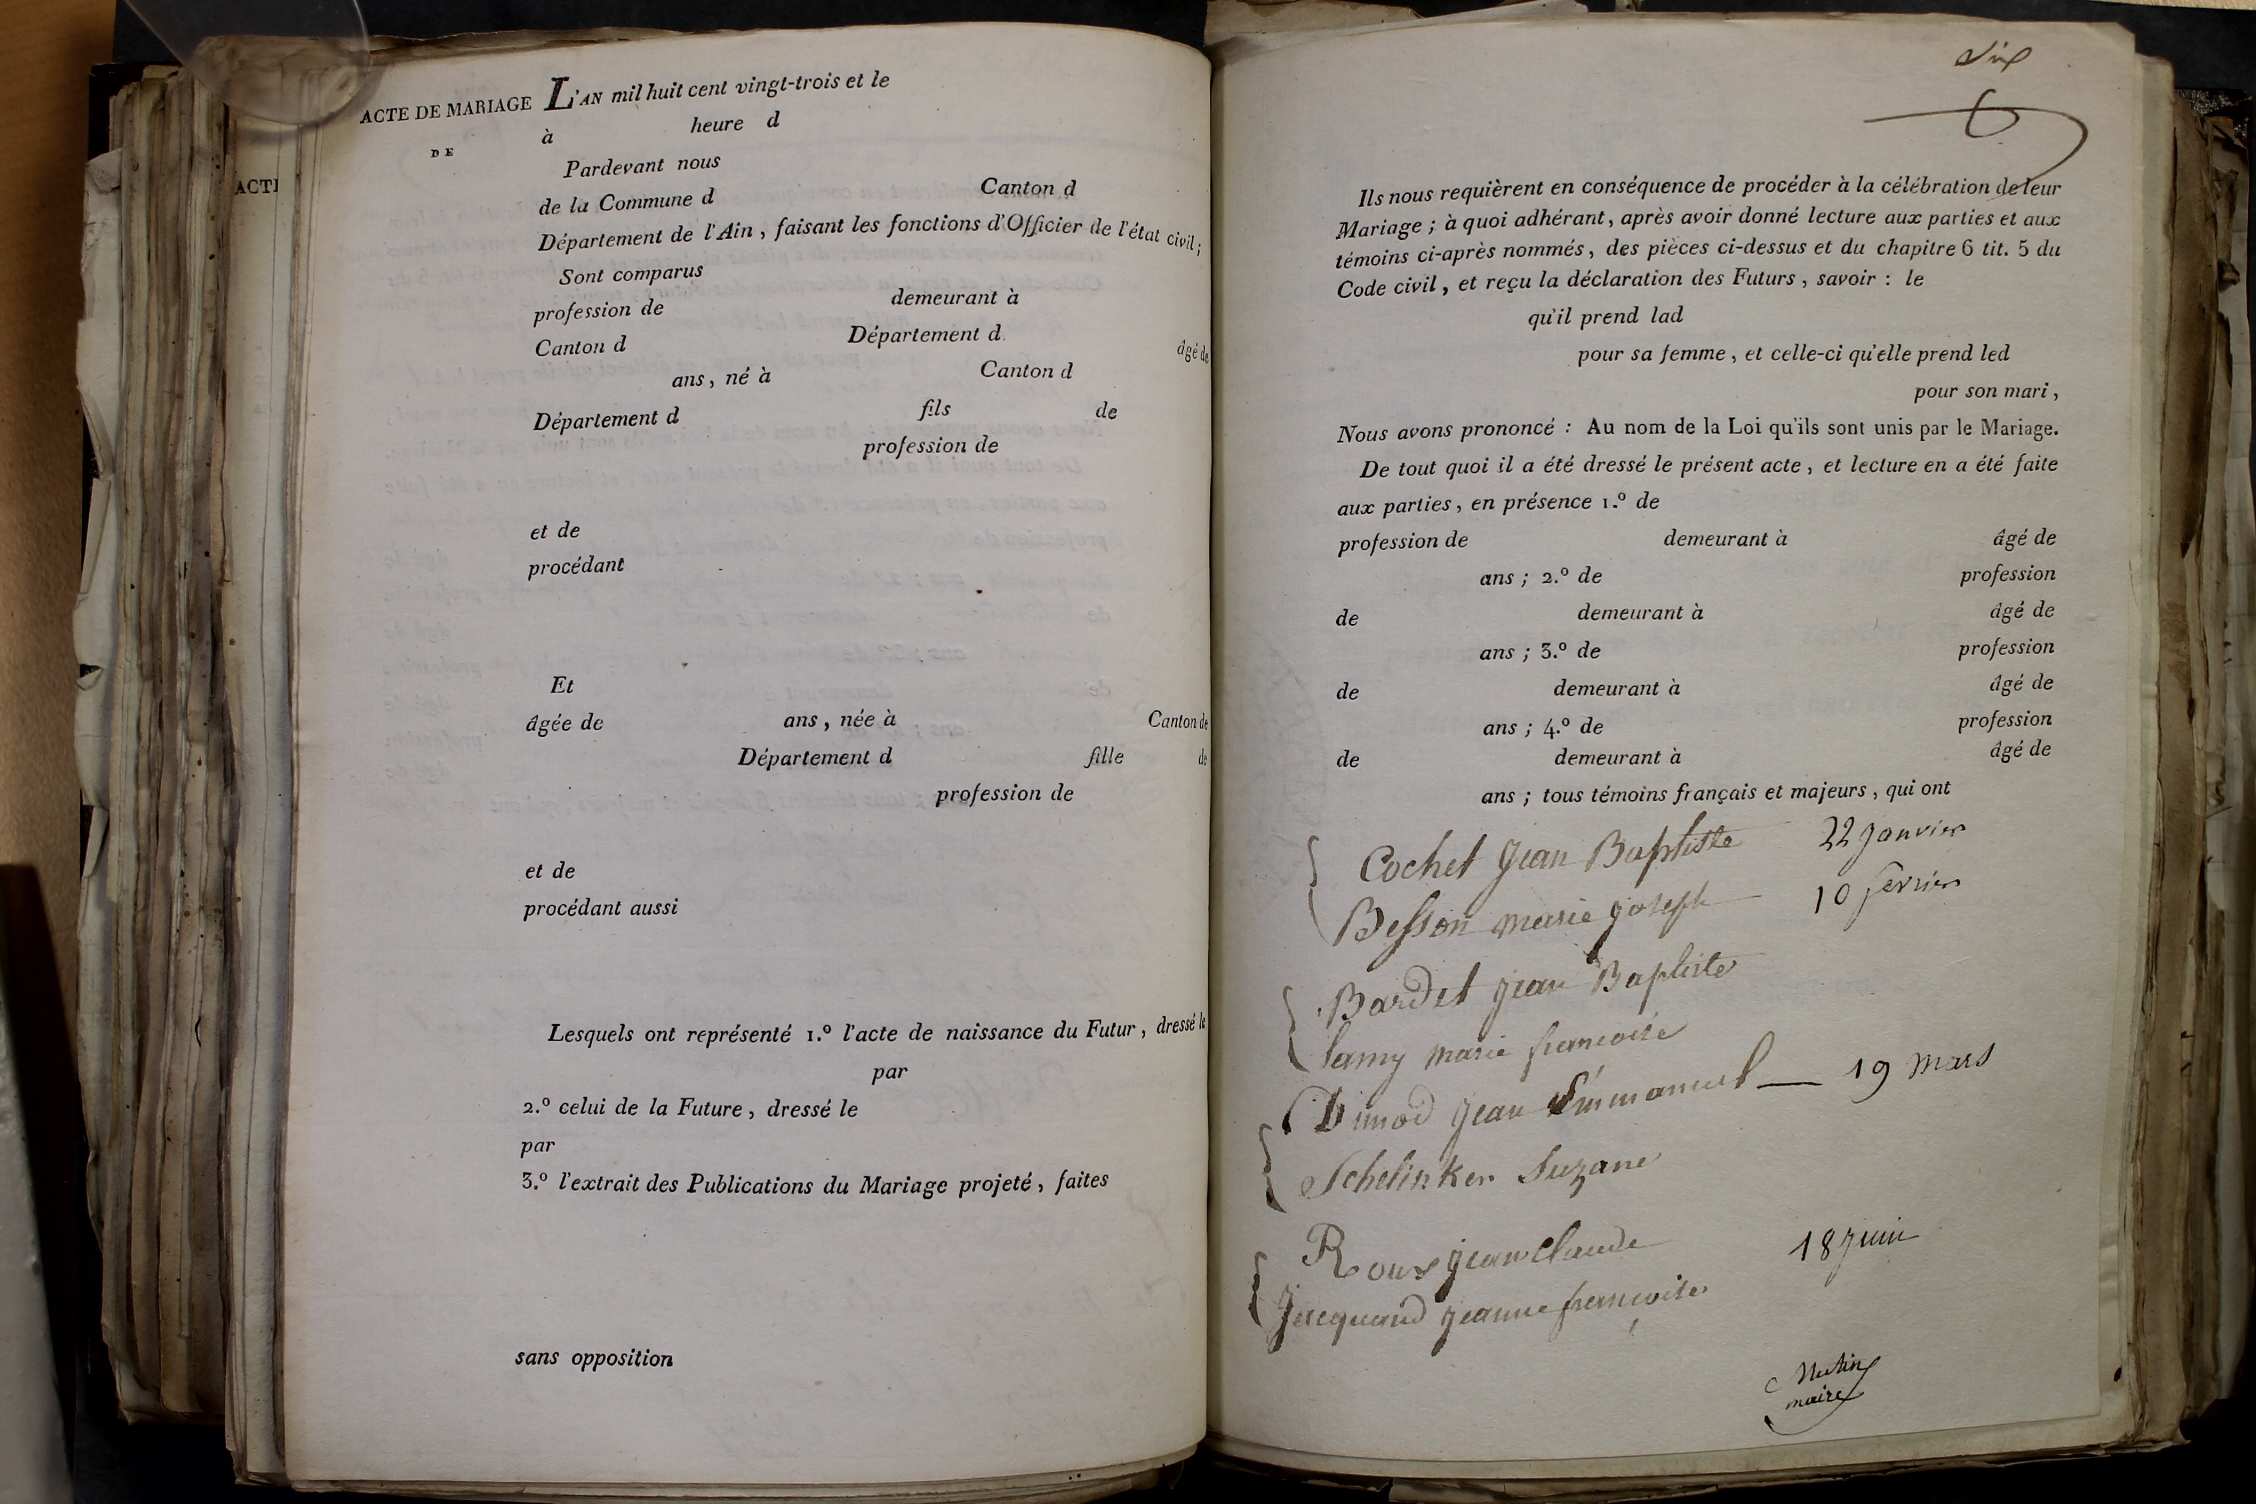 ACTE DE MARIAGE
DE
L'AN mil huit cent vingt-trois et le
à heure d
Pardevant nous
de la Commune d Canton d
Département de l'Ain, faisant les fonctions d'Officier de l'état civil;
Sont comparus
profession de demeurant à
Canton d Département d
âgé de
ans, né à Canton d
Département d fils de
profession de
et de
procédant
Et
âgée de ans, née à Canton de
Département d fille de
profession de
et de
procédant aussi
Lesquels ont représenté 1.º l'acte de naissance du Futur, dressé le
par
2.º celui de la Future, dressé le
par
3.º l'extrait des Publications du Mariage projeté, faites
sans opposition
ACTE
Six
Ils nous requièrent en conséquence de procéder à la célébration de leur
Mariage; à quoi adhérant, après avoir donné lecture aux parties et aux
témoins ci-après nommés, des pièces ci-dessus et du chapitre 6 tit. 5 du
Code civil, et reçu la déclaration des Futurs, savoir : le
qu'il prend lad
pour sa femme, et celle-ci qu'elle prend led
pour son mari,
Nous avons prononcé : Au nom de la Loi qu'ils sont unis par le Mariage.
De tout quoi il a été dressé le présent acte, et lecture en a été faite
aux parties, en présence 1.º de
profession de demeurant à âgé de
ans; 2.º de profession
de demeurant à âgé de
ans; 3.º de profession
de demeurant à âgé de
ans; 4.º de profession
de demeurant à âgé de
ans; tous témoins français et majeurs, qui ont
Cochet Jean Baptiste 22 janvier
Besson marie joseph 10 fevrier
Bardet jean Baptiste
lamy marie francoise
Dimod jean Emmanuel — 19 mars
Schelinker Suzane
Roux jean Claude 18 juin
Jacquand jeanne françoise
maire